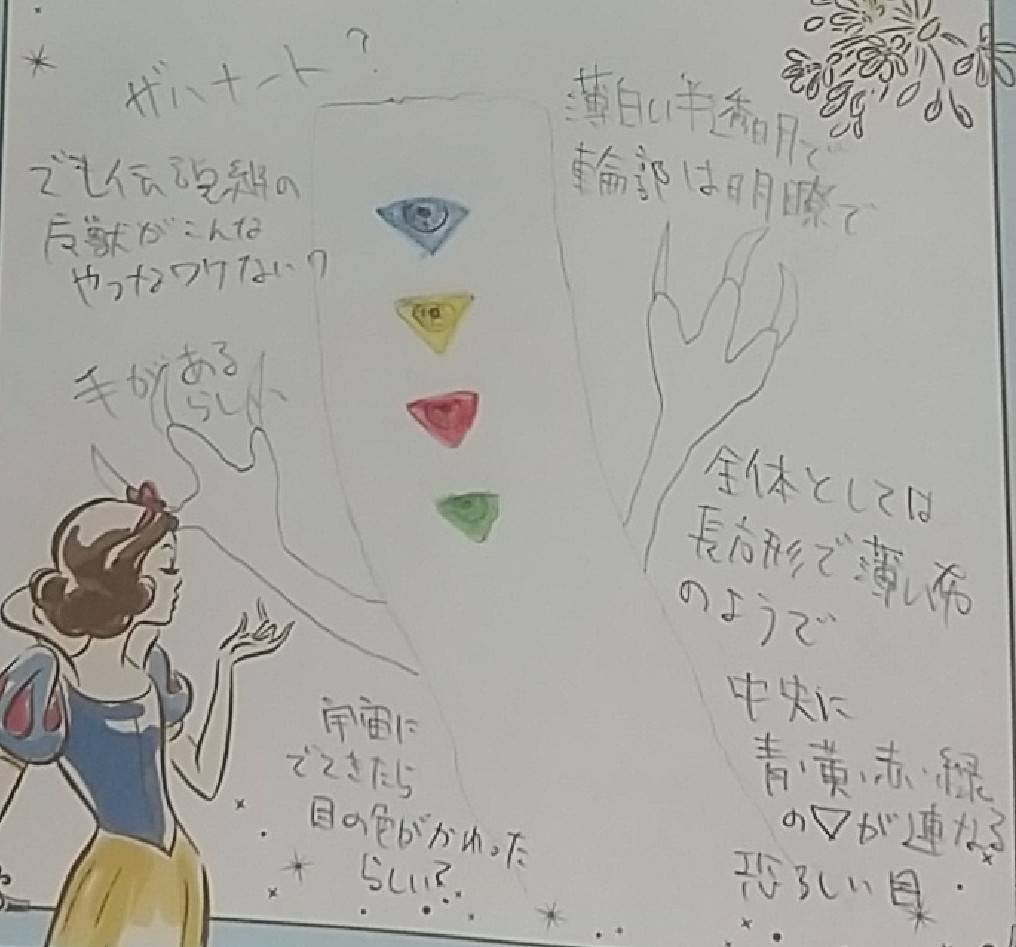 ザハナート?
でも伝説級の
反獣がこんな
やつなワケない?
手がある
らしい
薄白い半透明で
輪郭は明瞭で
全体としては
長方形で薄い布
のようで
中央に
青い黄い赤い緑
の▽が連なる
恐ろしい目
宇宙に
でてきたら
目の色がかわった
らしい?